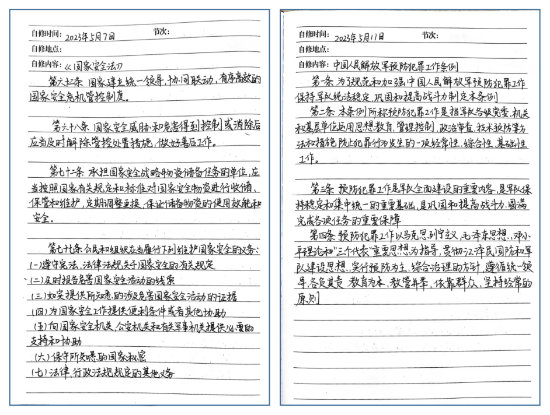 自修时间：2023年5月7日 节次：
自修地点：
自修内容：《国家安全法》
国家建立统一领导,协同联动,有序高效的
国家安全危机管控制度。
第六十八条 国家安全威胁和危害得到控制或消除后
应当及时解除管控处置措施,做好善后工作。
第七十一条 承担国家安全战略物资储备任务的单位,应
当按照国家有关规定和标准对国家安全物资进行收储、
保管和维护,定期调整更换,保证储备物资的使用效能和
安全。
第七十七条 公民和组织应当履行下列维护国家安全的义务:
(一)遵守宪法、法律法规关于国家安全的有关规定
(二)及时报告危害国家安全活动的线索
(三)如实提供所知悉的涉及危害国家安全活动的证据
(四)为国家安全工作提供便利条件或者其他协助
(五)向国家安全机关、公安机关和有关军事机关提供必要的
支持和协助
(六)保守所知悉的国家秘密
(七)法律、行政法规规定的其他义务
自修时间：2023年5月11日 节次：
自修地点：
自修内容：中国人民解放军预防犯罪工作条例
第一条 为了规范和加强中国人民解放军预防犯罪工作
保持军队纯洁稳定,巩固和提高战斗力制定本条例
第二条 本条例所称预防犯罪工作是指军队各级党委,机关
和基层单位运用思想教育,管理控制,政治审查,技术预防等方
法和措施防止犯罪行为发生的一项经常性,综合性,基础性
工作。
第三条 预防犯罪工作是军队全面建设的重要内容,是军队保
持稳定和集中统一的重要基础,是巩固和提高战斗力,圆满
完成各项任务的重要保障
第四条 预防犯罪工作以马克思列宁主义,毛泽东思想,邓小
平理论和"三个代表"重要思想为指导,贯彻江泽民国防和军
队建设思想,实行预防为主,综合治理的方针,遵循统一领
导,各负其责,教育为本,教管并举,依靠群众,坚持经常的
原则